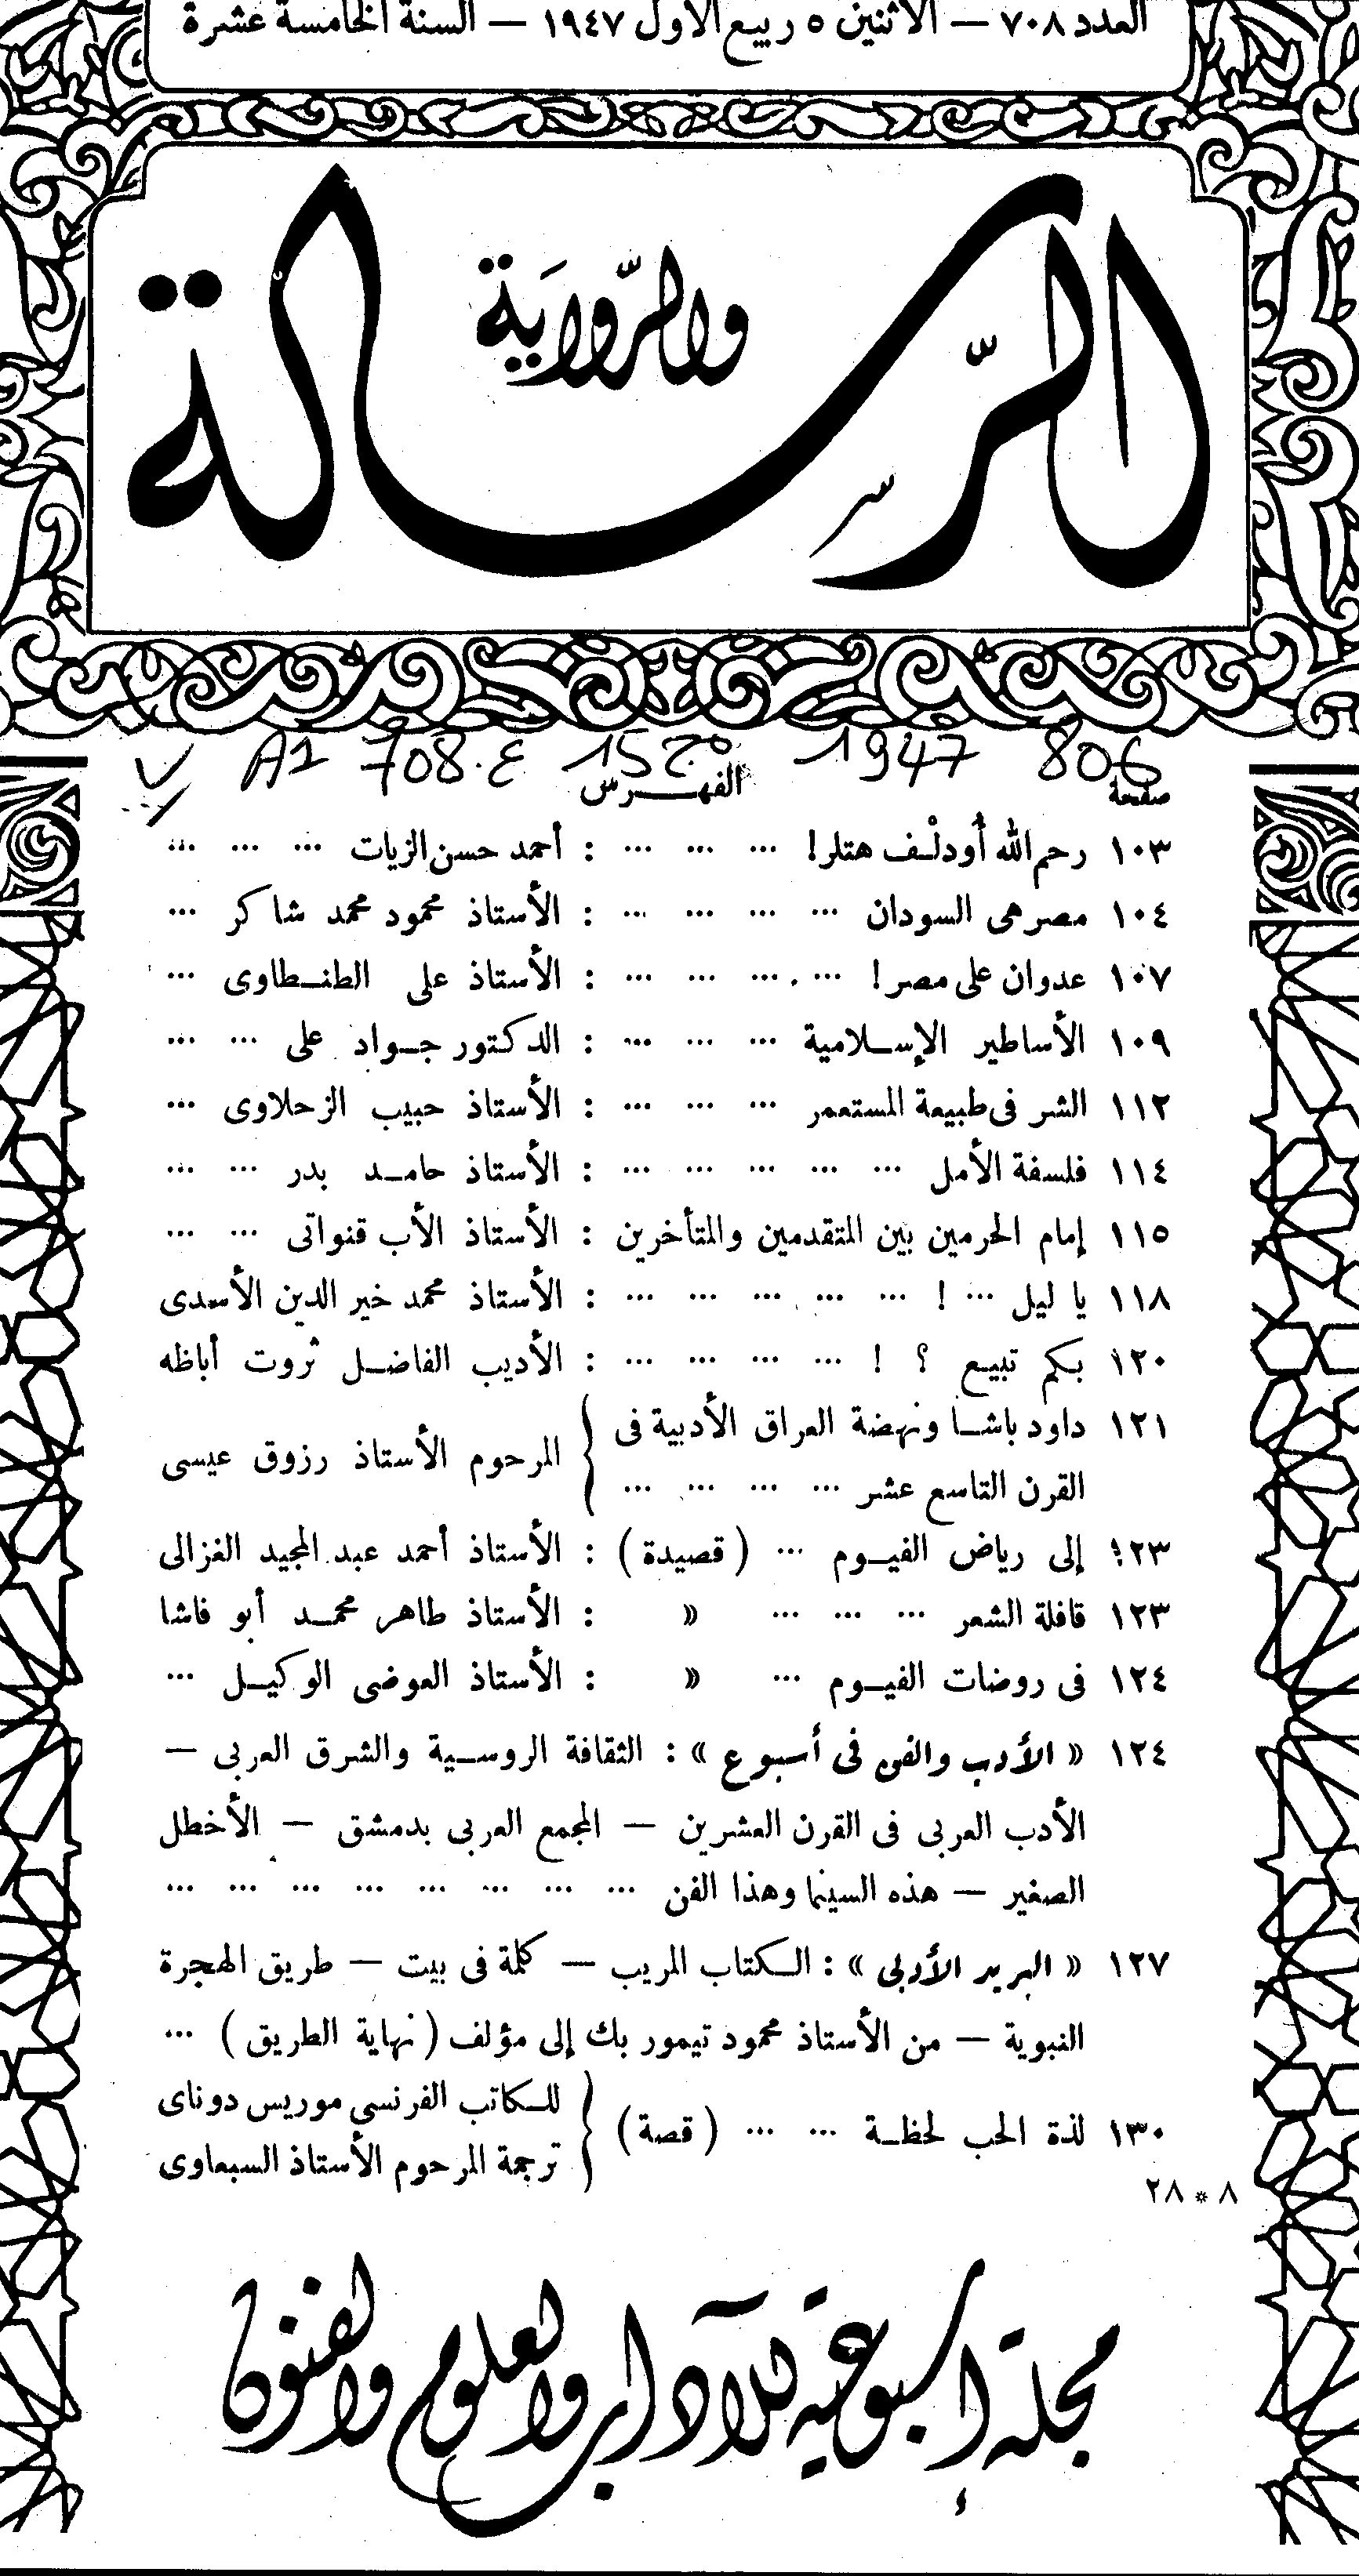 العدد ٧٠٨ — الاثنين ٥ ربيع الاول ١٩٤٧ — السنة الخامسة عشرة
الرسالة
والرواية
A1 708.ع 15ج 1947 806
الفهرس
صفحة
١٠٣ رحم الله أُودلْف هتلر! ... ... ... : أحمد حسن الزيات ... ... ...
١٠٤ مصر هى السودان ... ... ... ... : الأستاذ محمود محمد شاكر ...
١٠٧ عدوان على مصر! ... ... ... ... : الأستاذ على الطنطاوى ...
١٠٩ الأساطير الإسلامية ... ... ... : الدكتور جواد على ... ...
١١٢ الشر فى طبيعة المستعمر ... ... ... : الأستاذ حبيب الزحلاوى ...
١١٤ فلسفة الأمل ... ... ... ... ... : الأستاذ حامد بدر ... ...
١١٥ إمام الحرمين بين المتقدمين والمتأخرين : الأستاذ الأب قنواتى ... ...
١١٨ يا ليل ... ! ... ... ... ... ... : الأستاذ محمد خير الدين الأسدى
١٢٠ بكم تبيع ؟ ! ... ... ... ... : الأديب الفاضل ثروت أباظه
١٢١ داود باشا ونهضة العراق الأدبية فى
القرن التاسع عشر ... ... ... ... } المرحوم الأستاذ رزوق عيسى
١٢٣ إلى رياض الفيوم ... ( قصيدة ) : الأستاذ أحمد عبد المجيد الغزالى
١٢٣ قافلة الشعر ... ... ... » : الأستاذ طاهر محمد أبو فاشا
١٢٤ فى روضات الفيوم ... » : الأستاذ العوضى الوكيل ...
١٢٤ « الأدب والفن فى أسبوع » : الثقافة الروسية والشرق العربى —
الأدب العربى فى القرن العشرين — المجمع العربى بدمشق — الأخطل
الصغير — هذه السينما وهذا الفن ... ... ... ... ... ... ... ...
١٢٧ « البريد الأدبى » : الكتاب المريب — كلمة فى بيت — طريق الهجرة
النبوية — من الأستاذ محمود تيمور بك إلى مؤلف ( نهاية الطريق ) ...
١٣٠ لذة الحب لحظة ... ... ( قصة ) } للكاتب الفرنسى موريس دوناى
ترجمة المرحوم الأستاذ السباعى
٨ * ٢٨
مجلة أسبوعية للآداب والعلوم والفنون